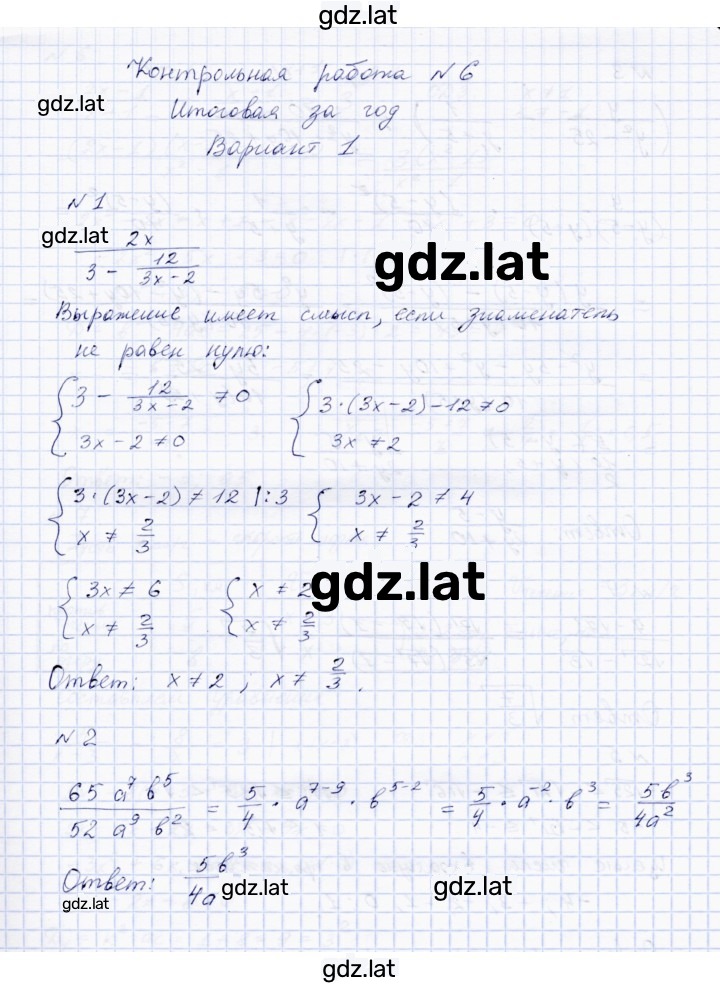 gdz.lat
Контрольная работа N 6
gdz.lat
Итоговая за год
Вариант 1
N 1
gdz.lat
2x / (3 - 12/(3x-2))
gdz.lat
Выражение имеет смысл, если знаменатель
не равен нулю:
{ 3 - 12/(3x-2) ≠ 0 { 3·(3x-2)-12≠0
{ 3x-2≠0 { 3x≠2
{ 3·(3x-2)≠12 |:3 { 3x-2≠4
{ x≠2/3 { x≠2/3
{ 3x≠6 { x≠2
{ x≠2/3 { x≠2/3
gdz.lat
Ответ: x≠2; x≠2/3.
N 2
65a⁷b⁵/52a⁹b² = 5/4·a⁷⁻⁹·b⁵⁻² = 5/4·a⁻²·b³ = 5b³/4a²
Ответ: 5b³/4a
gdz.lat
gdz.lat
gdz.lat
gdz.lat